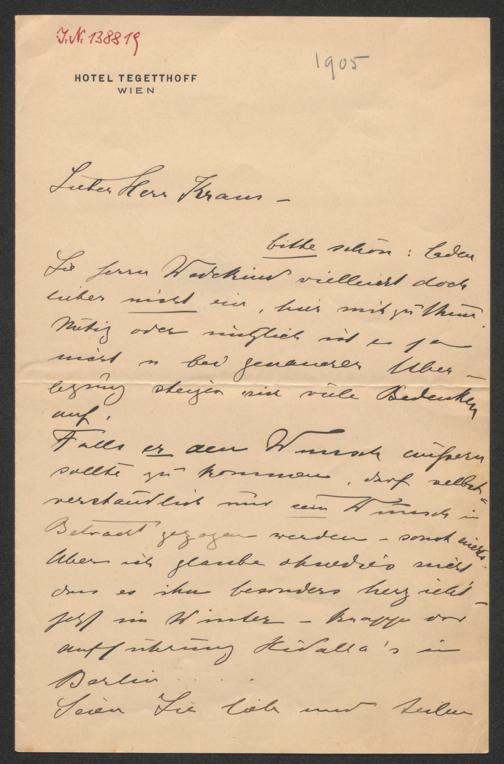 J.N. 138819
1905
HOTEL TEGETTHOFF
WIEN
Lieber Herr Kraus –
bitte schön: laden
Sie Herrn Wedekind vielleicht doch
lieber nicht ein, hier mitzuthun.
Nötig oder nützlich ist es ja
nicht u bei genauerer Über-
legung steigen mir viele Bedenken
auf.
Falls er den Wunsch äußern
sollte zu kommen, darf selbst-
verständlich nur sein Wunsch in
Betracht gezogen werden – sonst nichts.
Aber ich glaube ohnedies nicht
dass es ihn besonders herzieht –
jetzt im Winter – knapp vor
Aufführung Hidalla's in
Berlin . . . .
Seien Sie lieb und teilen